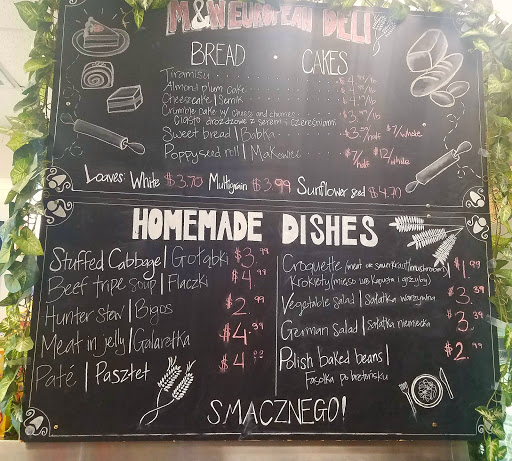 M&N EUROPEAN DELI
BREAD CAKES
Tiramisu $4.99/lb
Almond plum cake $4.99/lb
Cheesecake | Sernik
Crumble cake w/ cheese and cherries $3.99/lb
Ciasto drożdżowe z serem i czereśniami
Sweet bread | Babka $3.50/half $7/whole
Poppyseed roll | Makowiec $7/half $12/whole
Loaves: White $3.70 Multigrain $3.99 Sunflower seed $4.70
HOMEMADE DISHES
Stuffed Cabbage | Gołabki $3.99
Beef tripe soup | Flaczki $4.99
Hunter stew | Bigos $2.99
Meat in jelly | Galaretka $4.99
Paté | Pasztet $4.99
Croquette (meat or sauerkraut & mushrooms) $1.99
Krokiety (mieso lub kapusta i grzyby)
Vegetable salad | Sałatka warzywna $3.99
German Salad | Sałatka niemiecka $3.99
Polish baked beans | $2.99
Fasolka po bretońsku
SMACZNEGO!